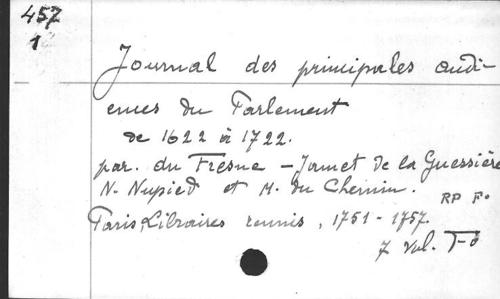 457
1
Journal des principales audi-
ences du Parlement
de 1622 à 1722.
par. du Fresne - Jamet de la Guessière
N. Nupied et M. du Chemin.
RP F°
Paris, Libraires reunis, 1751 - 1757.
7 vol. F°